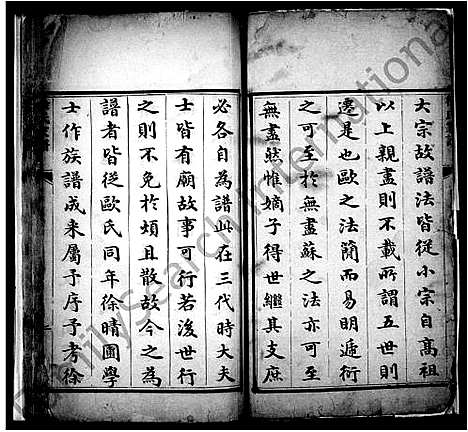 大宗故譜法皆從小宗自高祖
以上親盡則不載所謂五世則
遷是也歐之法簡而易明遞衍
之可至於無盡蘇之法亦可至
無盡然惟嫡子得世繼其支庶
必各自為譜此在三代時大夫
士皆有廟故事可行若後世行
之則不免於煩且散故今之為
譜者皆從歐氏同年徐晴圃學
士作族譜成來屬予序予考徐
FamilySearch International